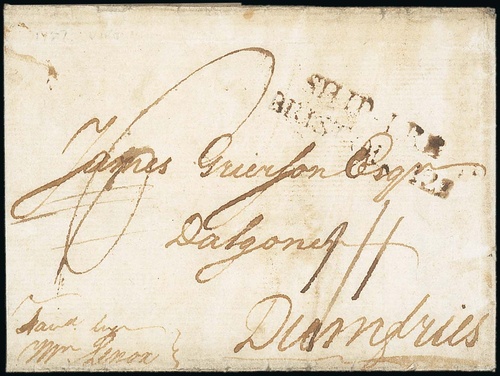 SHIP-LRE
BRISTOL
James Grierson Esqr
Dalgoner
Dumfries
Favd by
Mrs Lenox